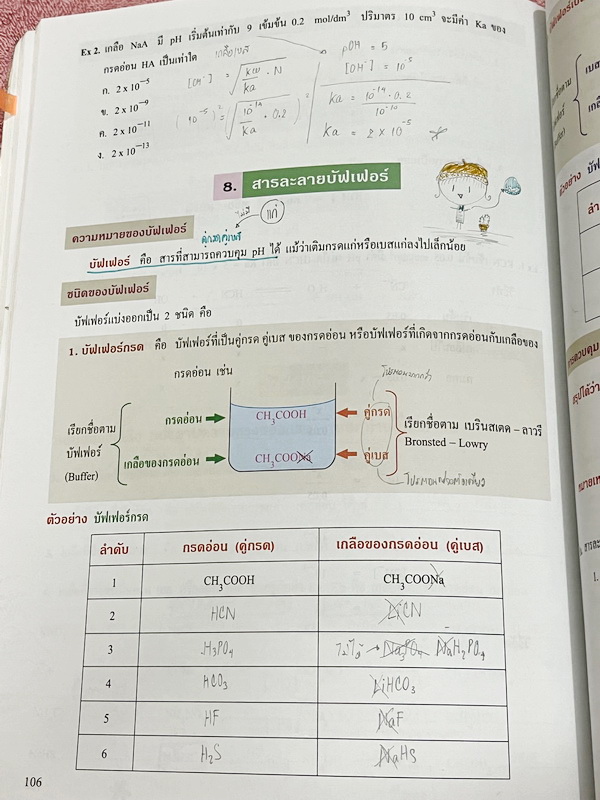 Ex 2. เกลือ NaA มี pH เริ่มต้นเท่ากับ 9 เข้มข้น 0.2 mol/dm³ ปริมาตร 10 cm³ จะมีค่า Ka ของ
กรดอ่อน HA เป็นเท่าใด เกลือเบส
ก. 2 x 10⁻⁵
ข. 2 x 10⁻⁹
ค. 2 x 10⁻¹¹
ง. 2 x 10⁻¹³
pOH = 5
[OH⁻] = 10⁻⁵
[OH⁻] = √(Kw/Ka · N)
(10⁻⁵)² = (√(10⁻¹⁴/Ka · 0.2))²
Ka = 10⁻¹⁴ · 0.2 / 10⁻¹⁰
Ka = 2 x 10⁻⁵
8. สารละลายบัฟเฟอร์
ความหมายของบัฟเฟอร์
ไม่มี แก่
คู่กรดคู่เบส
บัฟเฟอร์ คือ สารที่สามารถควบคุม pH ได้ แม้ว่าเติมกรดแก่หรือเบสแก่ลงไปเล็กน้อย
ชนิดของบัฟเฟอร์
บัฟเฟอร์แบ่งออกเป็น 2 ชนิด คือ
1. บัฟเฟอร์กรด คือ บัฟเฟอร์ที่เป็นคู่กรด คู่เบส ของกรดอ่อน หรือบัฟเฟอร์ที่เกิดจากกรดอ่อนกับเกลือของ
กรดอ่อน เช่น
โปรตอนมากกว่า
เรียกชื่อตาม
บัฟเฟอร์
(Buffer)
กรดอ่อน
CH₃COOH
คู่กรด
เกลือของกรดอ่อน
CH₃COONa
คู่เบส
เรียกชื่อตาม เบรินสเตด – ลาวรี
Bronsted – Lowry
ตัวอย่าง บัฟเฟอร์กรด
ลำดับ กรดอ่อน (คู่กรด) เกลือของกรดอ่อน (คู่เบส)
1 CH₃COOH CH₃COONa
2 HCN LiCN
3 H₃PO₄ ไม่ใช่ → Na₃PO₄ NaH₂PO₄
4 HCO₃ LiHCO₃
5 HF NaF
6 H₂S NaHS
106